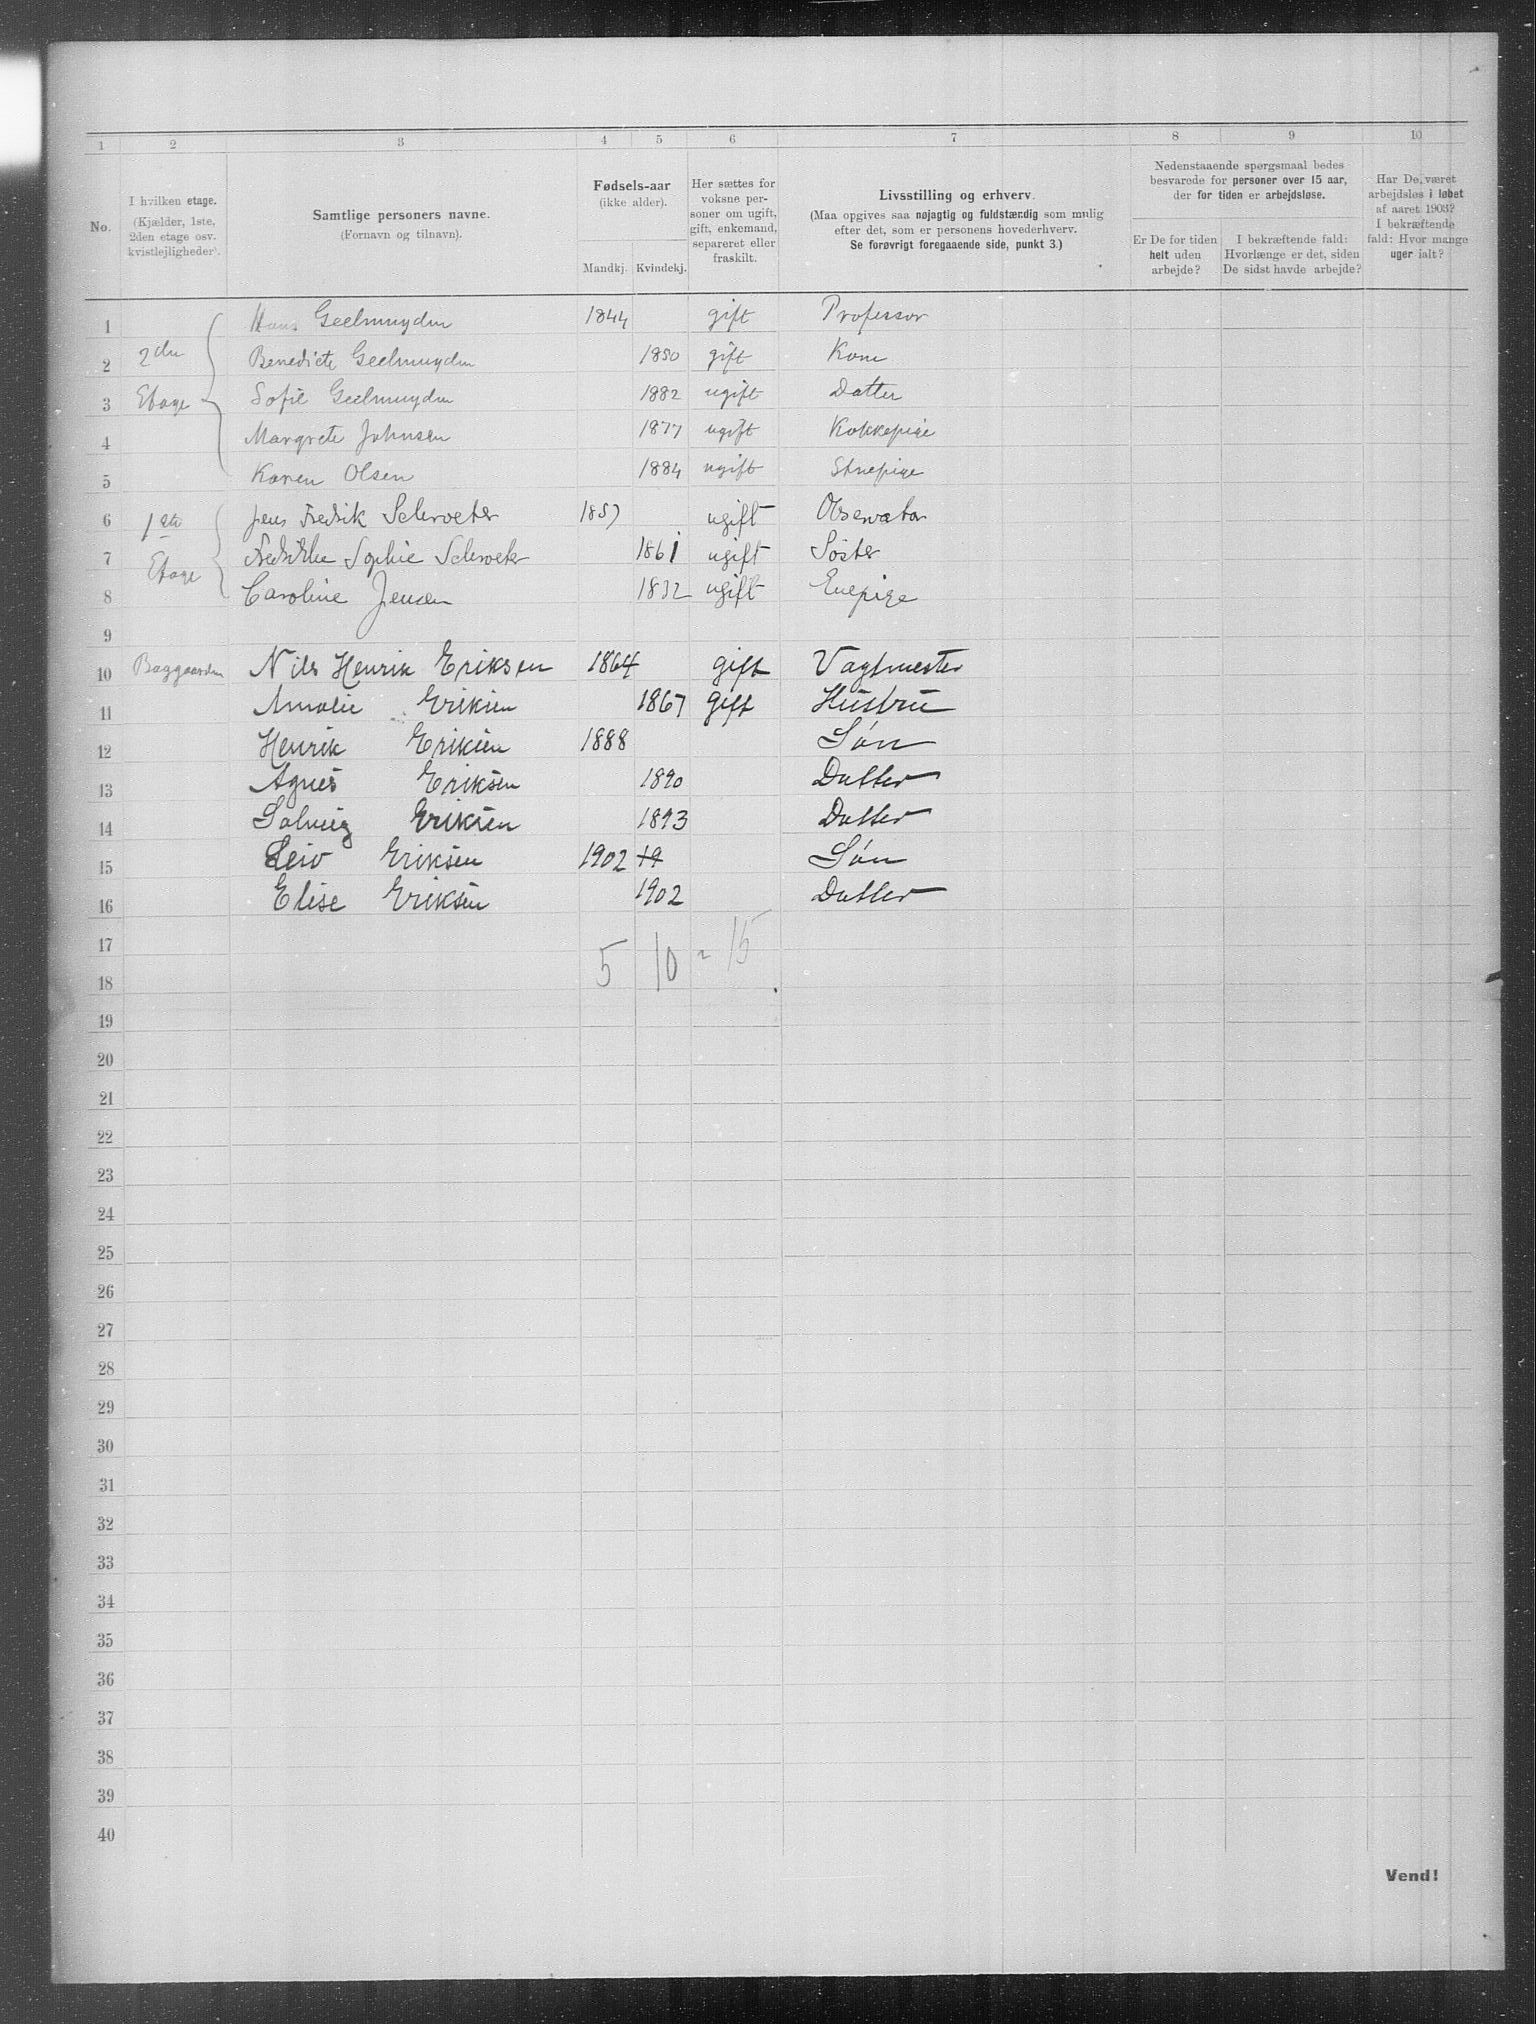 1 2 3 4 5 6 7 8 9 10
No.
I hvilken etage.
(Kjælder, 1ste,
2den etage osv.
kvistlejligheder).
Samtlige personers navne.
(Fornavn og tilnavn).
Fødsels-aar
(ikke alder).
Mandkj. Kvindekj.
Her sættes for
voksne per-
soner om ugift,
gift, enkemand,
separeret eller
fraskilt.
Livsstilling og erhverv.
(Maa opgives saa nøjagtig og fuldstændig som mulig
efter det, som er personens hovederhverv.
Se forøvrigt foregaaende side, punkt 3.)
Nedenstaaende spørgsmaal bedes
besvarede for personer over 15 aar,
der for tiden er arbejdsløse.
Er De for tiden
helt uden
arbejde?
I bekræftende fald:
Hvorlænge er det, siden
De sidst havde arbejde?
Har De været
arbejdsløs i løbet
af aaret 1903?
I bekræftende
fald: Hvor mange
uger ialt?
1 Hans Geelmuyden 1844 gift Professor
2 2den Benedicte Geelmuyden 1850 gift Kone
3 Etage Sofie Geelmuyden 1882 ugift Datter
4 Margrete Johnsen 1877 ugift Kokkepige
5 Karen Olsen 1884 ugift Stuepige
6 1ste Jens Fredrik Schroeter 1857 ugift Observator
7 Etage Fredrikke Sophie Schroeter 1861 ugift Søster
8 Caroline Jensen 1832 ugift Enepige
9
10 Baggaarden Nils Henrik Eriksen 1864 gift Vagtmester
11 Amalie Eriksen 1867 gift Hustru
12 Henrik Eriksen 1888 Søn
13 Agnes Eriksen 1890 Datter
14 Solveig Eriksen 1893 Datter
15 Leiv Eriksen 1902 19 Søn
16 Elise Eriksen 1902 Datter
17
5 10 = 15
18
19
20
21
22
23
24
25
26
27
28
29
30
31
32
33
34
35
36
37
38
39
40
Vend!